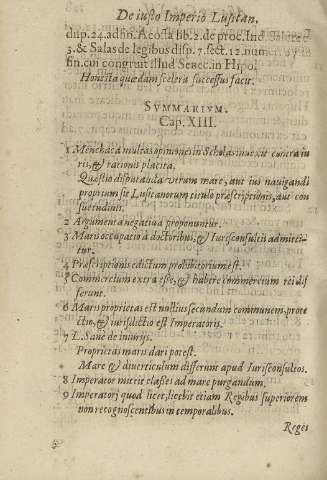 De iusto Imperio Lusitan.
disp. 24. ad fin. Acosta lib. 2. de proc. Ind. Salute
3. & Salas de legibus disp. 7. sect. 12. num.
fin. cui congruit illud Senec. in Hipol.
Honesta quædam scelera successus facit.
SVMMARIVM.
Cap. XIII.
1 Menchaca multas opiniones in Scholas inuexit contra iu
ris, & rationis placita,
Quæstio disputanda vtrum mare, aut ius nauigandi
proprium sit Lusitanorum titulo præscriptionis, aut con
suetudinis.
2 Argumenta negatiua proponuntur.
3 Maris occupatio à doctoribus, & Iurisconsultis admitti-
tur.
4 Præscriptionis edictum prohibitorium est.
5 Commercium ex re esse, & habere commercium rei dif
ferunt.
6 Maris proprietas est nullius secundum communem, prote
ctio, & iurisdictio est Imperatoris.
7 L. Sanè de iniurijs.
Proprietas maris dari potest.
Mare & diuerticulum differunt apud Iurisconsultos.
8 Imperator mittit classes ad mare purgandum.
9 Imperatori quod licet, licebit etiam Regibus superiorem
non recognoscentibus in temporalibus.
Reges